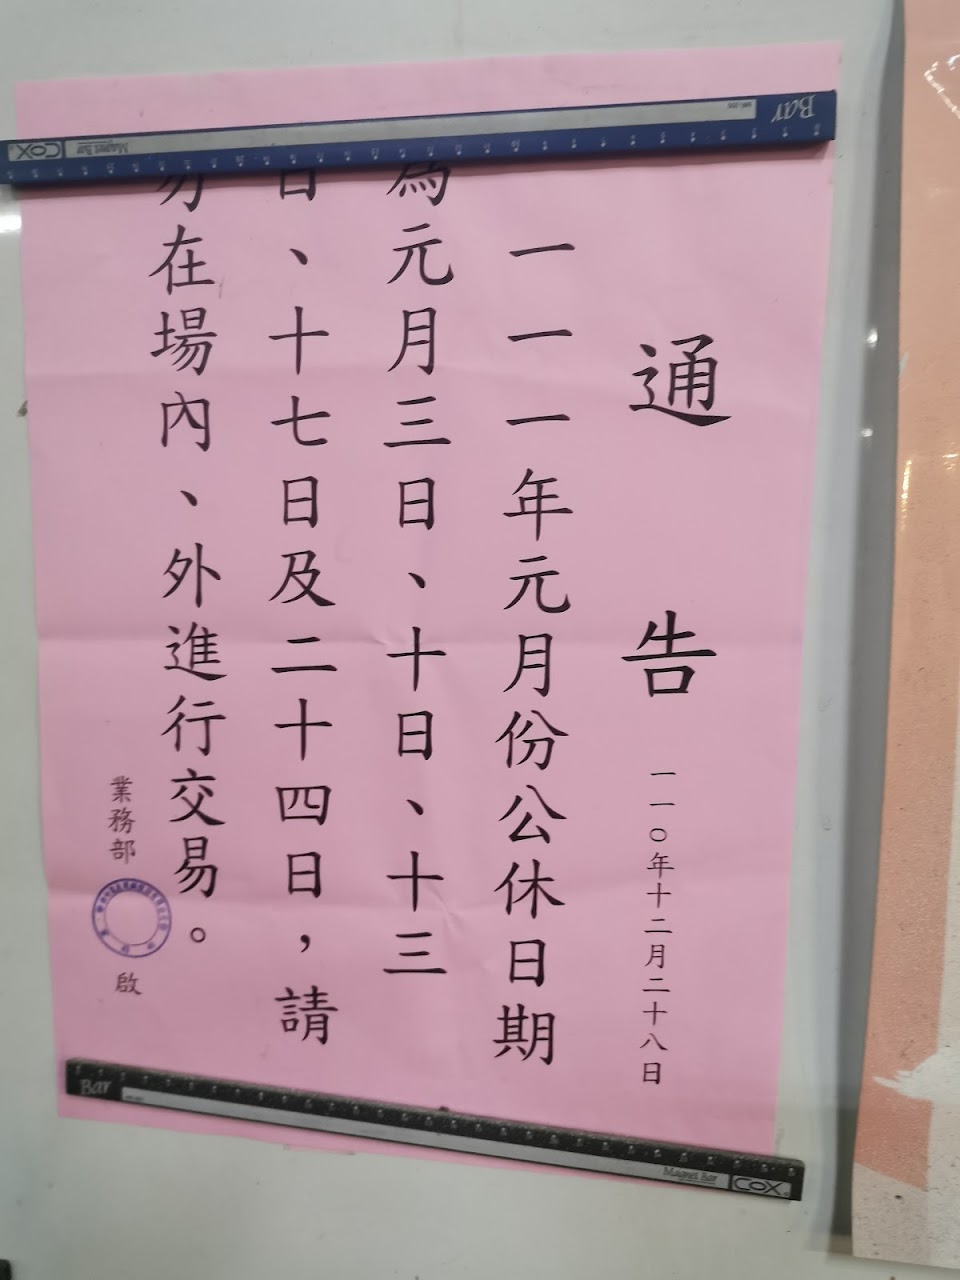 通告
一一０年十二月二十八日
一一一年元月份公休日期
為元月三日、十日、十三
日、十七日及二十四日，請
勿在場內、外進行交易。
業務部
啟
Bar
Magnet Bar
COX
Bar
Magnet Bar
COX